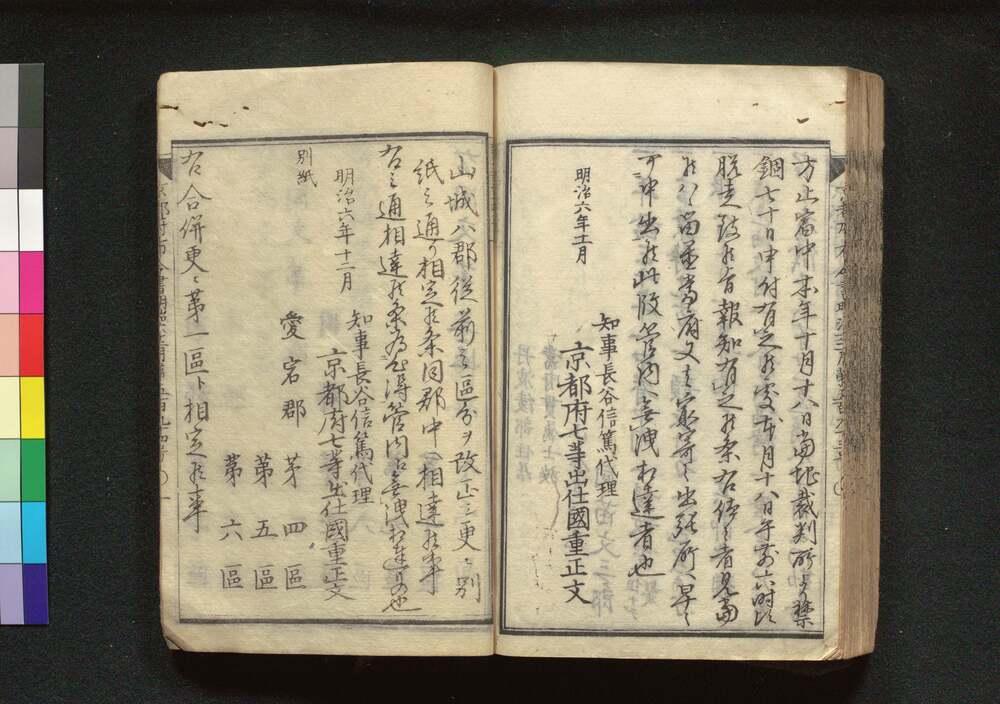 方止宿中本年十月十八日當地裁判所ゟ禁
錮七十日申付有之候處本月十八日午前六時頃
脱走致候旨報知有之候条右体之者見當
候ハヽ留置當府又ハ最寄之出張所ヘ早々
可申出候此段管内無洩相達者也
明治六年十二月
知事長谷信篤代理
京都府七等出仕國重正文
山城八郡従前之區分ヲ改正シ更ニ別
紙之通リ相定候条同郡中ヘ相達候事
右之通相達候条為心得管内ニ無洩相達るもの也
明治六年十二月
知事長谷信篤代理
京都府七等出仕國重正文
別紙
愛宕郡
第四區
第五區
第六區
右合併更ニ第一區ト相定候事